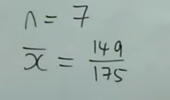 n = 7
x̄ = 149/175